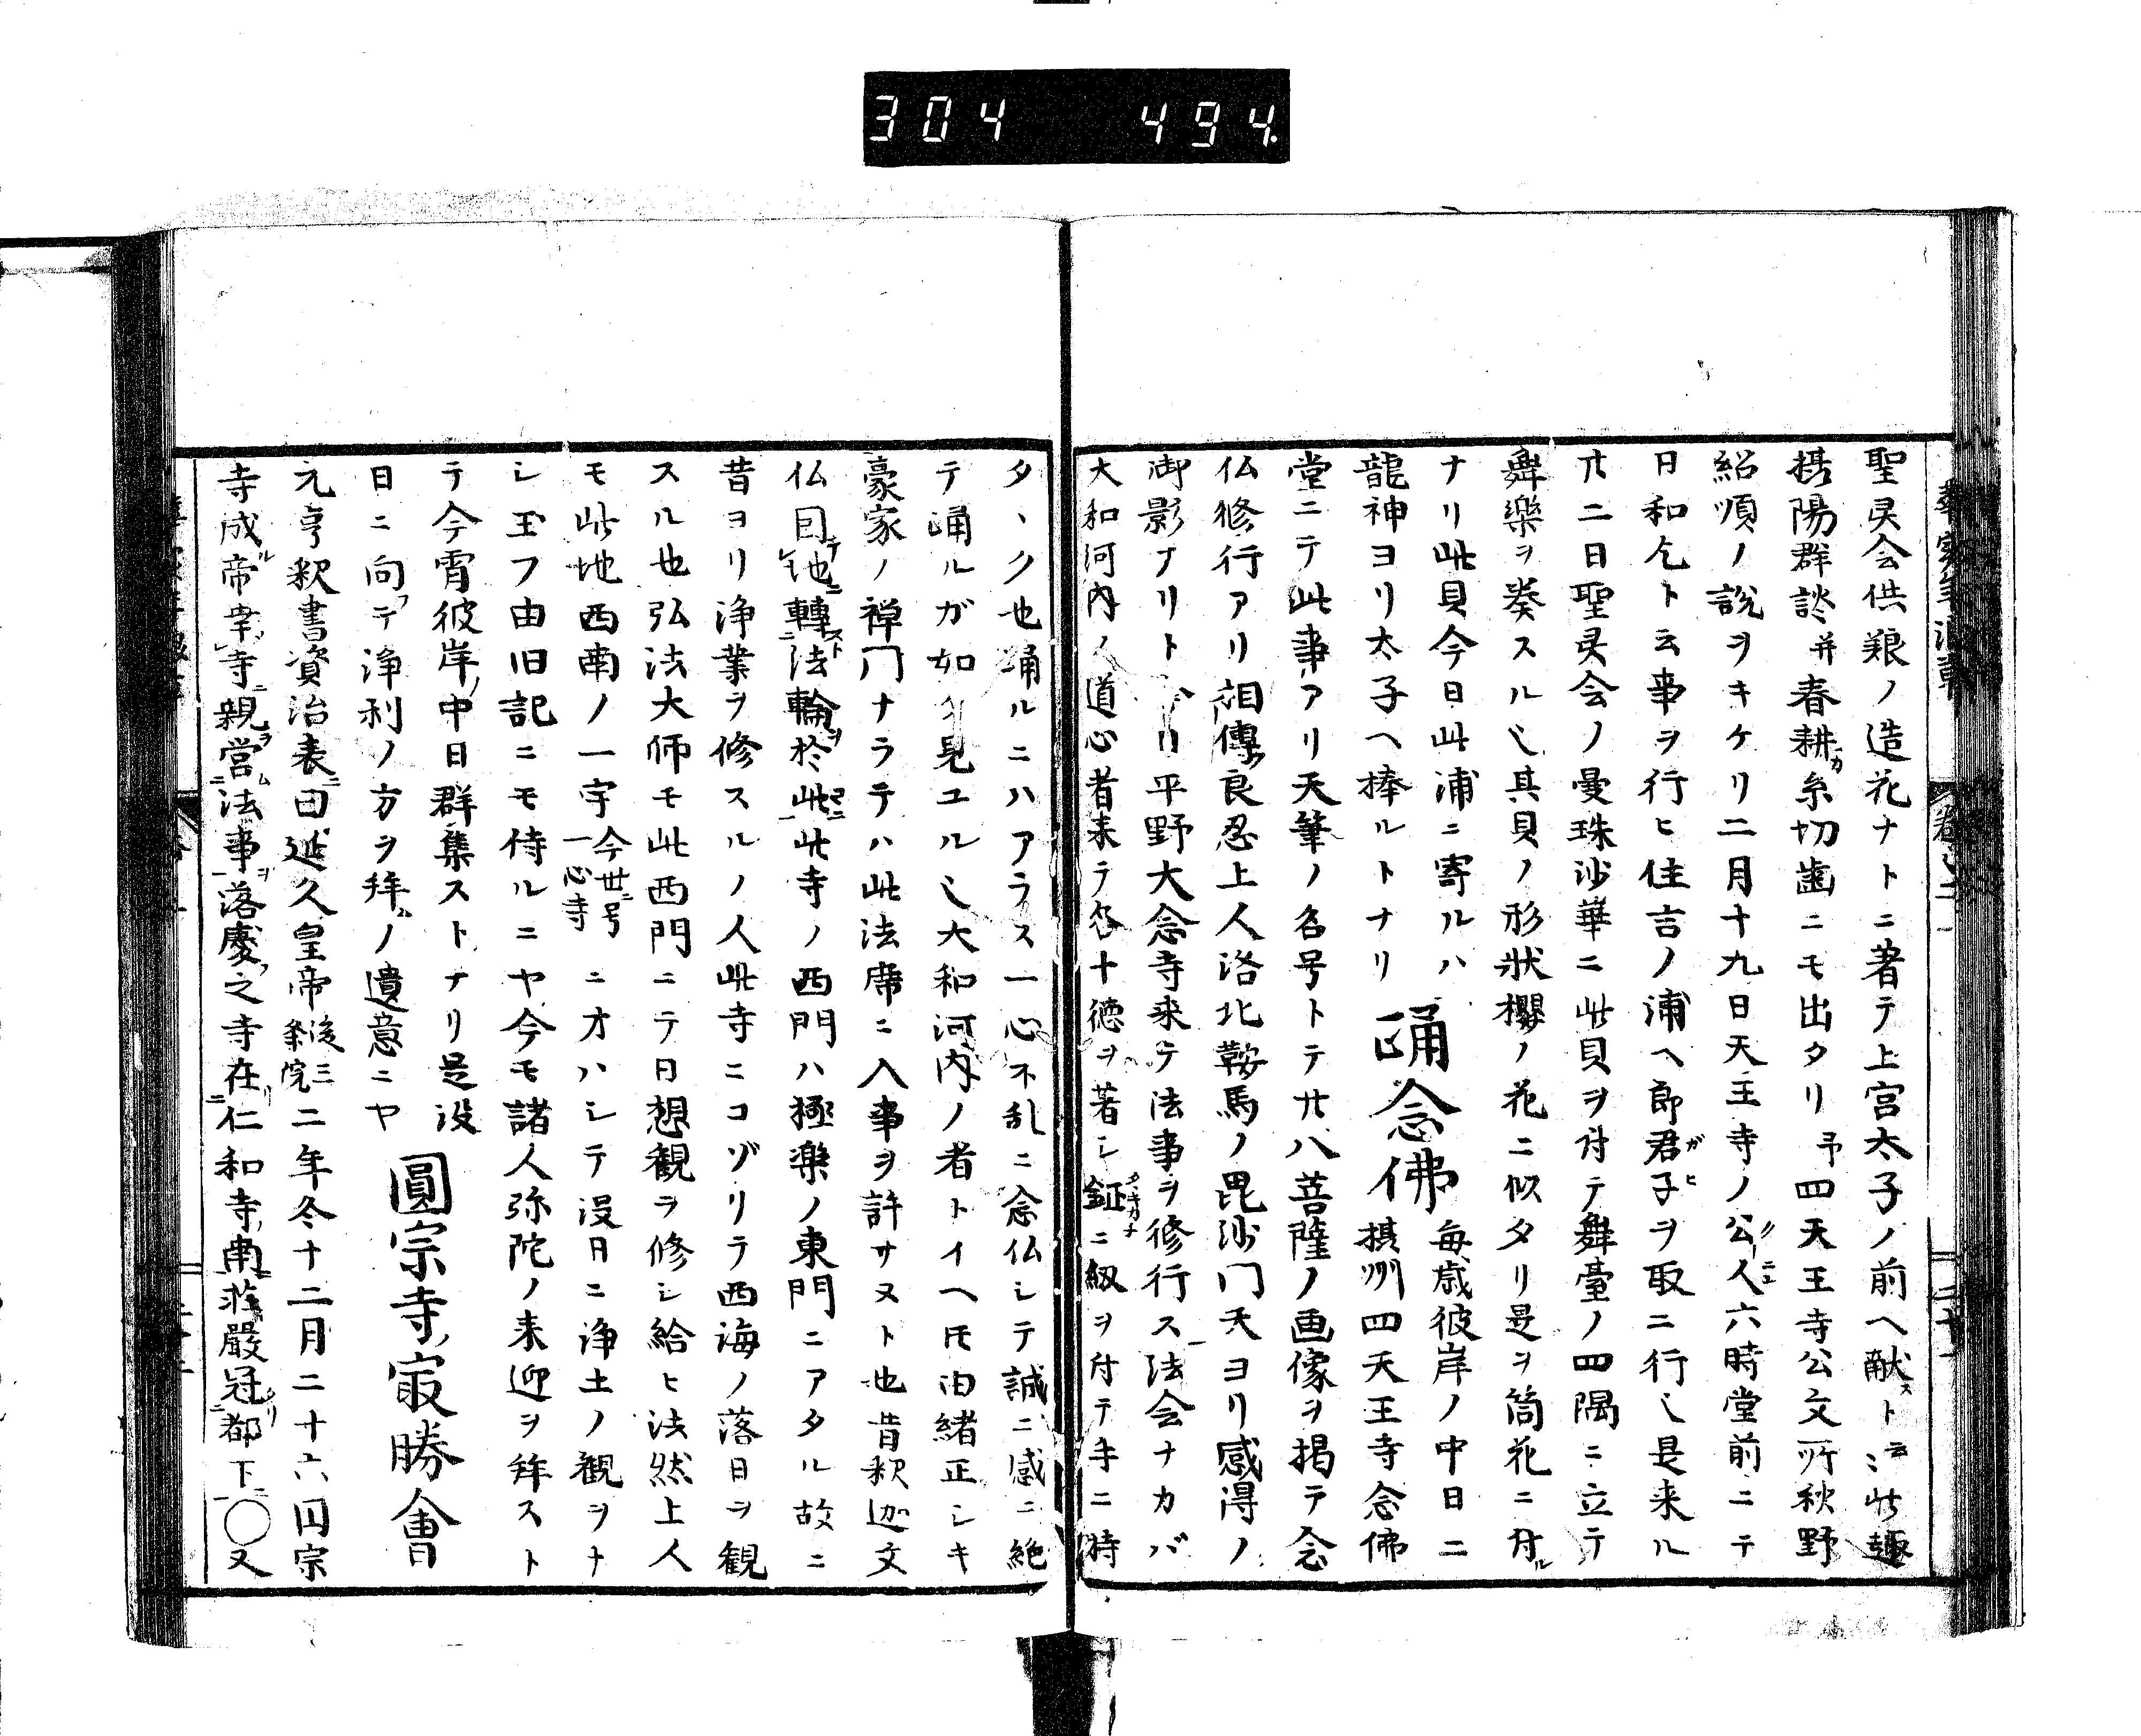 304 494
聖㚑会供粮ノ造花ナトニ著テ上宮太子ノ前ヘ献スト云〻此趣
摂陽群談并春耕カ糸切歯ニモ出タリ予四天王寺公文所秋野
紹順ノ説ヲキケリ二月十九日天王寺ノ公人六時堂前ニテ
日和乞ト云事ヲ行ヒ住吉ノ浦ヘ郎君子ガヒヲ取ニ行也是来ル
廿二日聖㚑会ノ曼珠沙華ニ此貝ヲ付テ舞臺ノ四隅ニ立テ
舞楽ヲ奏スル也其貝ノ形状櫻ノ花ニ似タリ是ヲ筒花ニ付ル
ナリ此貝今日此浦ニ寄ルハ
龍神ヨリ太子ヘ捧ルトナリ
踊念佛
毎歳彼岸ノ中日ニ
摂州四天王寺念佛
堂ニテ此事アリ天筆ノ名号トテ廿八菩薩ノ画像ヲ掲テ念
仏修行アリ相傳フ良忍上人洛北鞍馬ノ毘沙門天ヨリ感得ノ
御影ナリト平野大念寺来テ法事ヲ修行ス法会ナカバ
大和河内ノ道心者来テ各十徳ヲ著シ鉦ニ紐ヲ付テ手ニ時
タヽク也踊ルニハアラス一心不乱ニ念仏シテ誠ニ感ニ絶
テ踊ルガ如ク見ユル也大和河内ノ者トイヘ𪜈由緒正シキ
豪家ノ禅門ナラテハ此法席ニ入事ヲ許サヌト也昔釈迦文
仏目テレ地ニ轉ニスト法輪ヲ於一此ニ此寺ノ西門ハ極楽ノ東門ニアタル故ニ
昔ヨリ浄業ヲ修スルノ人此寺ニコゾリテ西海ノ落日ヲ観
スル也弘法大師モ此西門ニテ日想観ヲ修シ給ヒ法然上人
モ此地西南ノ一宇今世ニ号一心寺ニオハシテ没日ニ浄土ノ観ヲナ
シ玉フ由旧記ニモ侍ルニヤ今モ諸人弥陀ノ来迎ヲ拜スト
テ今宵彼岸ノ中日群集ストナリ是没
日ニ向フテ浄利ノ方ヲ拜スノ遺意ニヤ
圓宗寺ノ㝡勝會
元亨釈書資治表ニ曰延久皇帝後三条院二年冬十二月二十六円宗
寺成ル帝幸レ寺ニ親ラ営ニム法事ヲ一落慶ス之寺在ニ仁和寺ノ南ニ一荘嚴冠ニタリ都下ニ一〇又